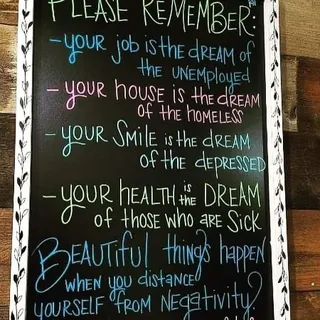 PLEASE REMEMBER:
- YOUR job is the dream of
the UNEMPLOYED
- YOUR hOUSE is the dREAM
of the homeless
- YOUR Smile is the dream
of the depressed
- YOUR hEALTH is the DREAM
of those who are Sick
BEAUTIFUL things happen
when you distance
YOURSELF from NEGATiViTY!